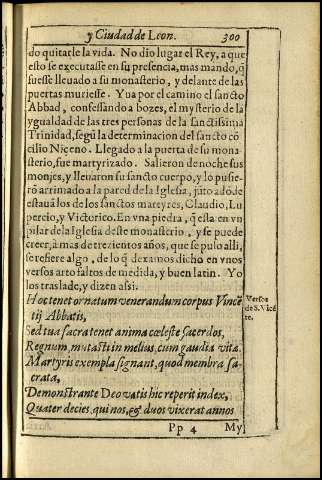 y Ciudad de Leon. 300
do quitarle la vida. No dio lugar el Rey, a que
esto se executasse en su presencia, mas mando, q̃
fuesse lleuado a su monasterio, y delante de las
puertas muriesse. Yua por el camino el sancto
Abbad, confessando a bozes, el mysterio de la
ygualdad de las tres personas de la sanctissima
Trinidad, segũ la determinacion del sancto cõ
cilio Niceno. Llegado a la puerta de su mona-
sterio, fue martyrizado. Salieron de noche sus
monjes, y lleuaron su sancto cuerpo, y lo pusie-
rõ arrimado a la pared de la Iglesia, jũto adõde
estauã los de los sanctos martyres, Claudio, Lu
percio, y Victorico. En vna piedra, q̃ esta en vn
pilar de la Iglesia deste monasterio, y se puede
creer, à mas de trezientos años, que se puso alli,
se refiere algo, de lo q̃ dexamos dicho en vnos
versos arto faltos de medida, y buen latin. Yo
los traslade, y dizen assi.
Hoc tenet ornatum venerandum corpus Vincẽ
tij Abbatis,
Sed tua sacra tenet anima cœleste Sacerdos,
Regnum, mutasti in melius, cum gaudia vitæ.
Martyris exempla signant, quod membra sa-
crata,
Demonstrante Deo vatis hic reperit index,
Quater decies, qui nos, & duos vixerat annos
Versos
de S. Vicẽ
te.
Pp 4 My